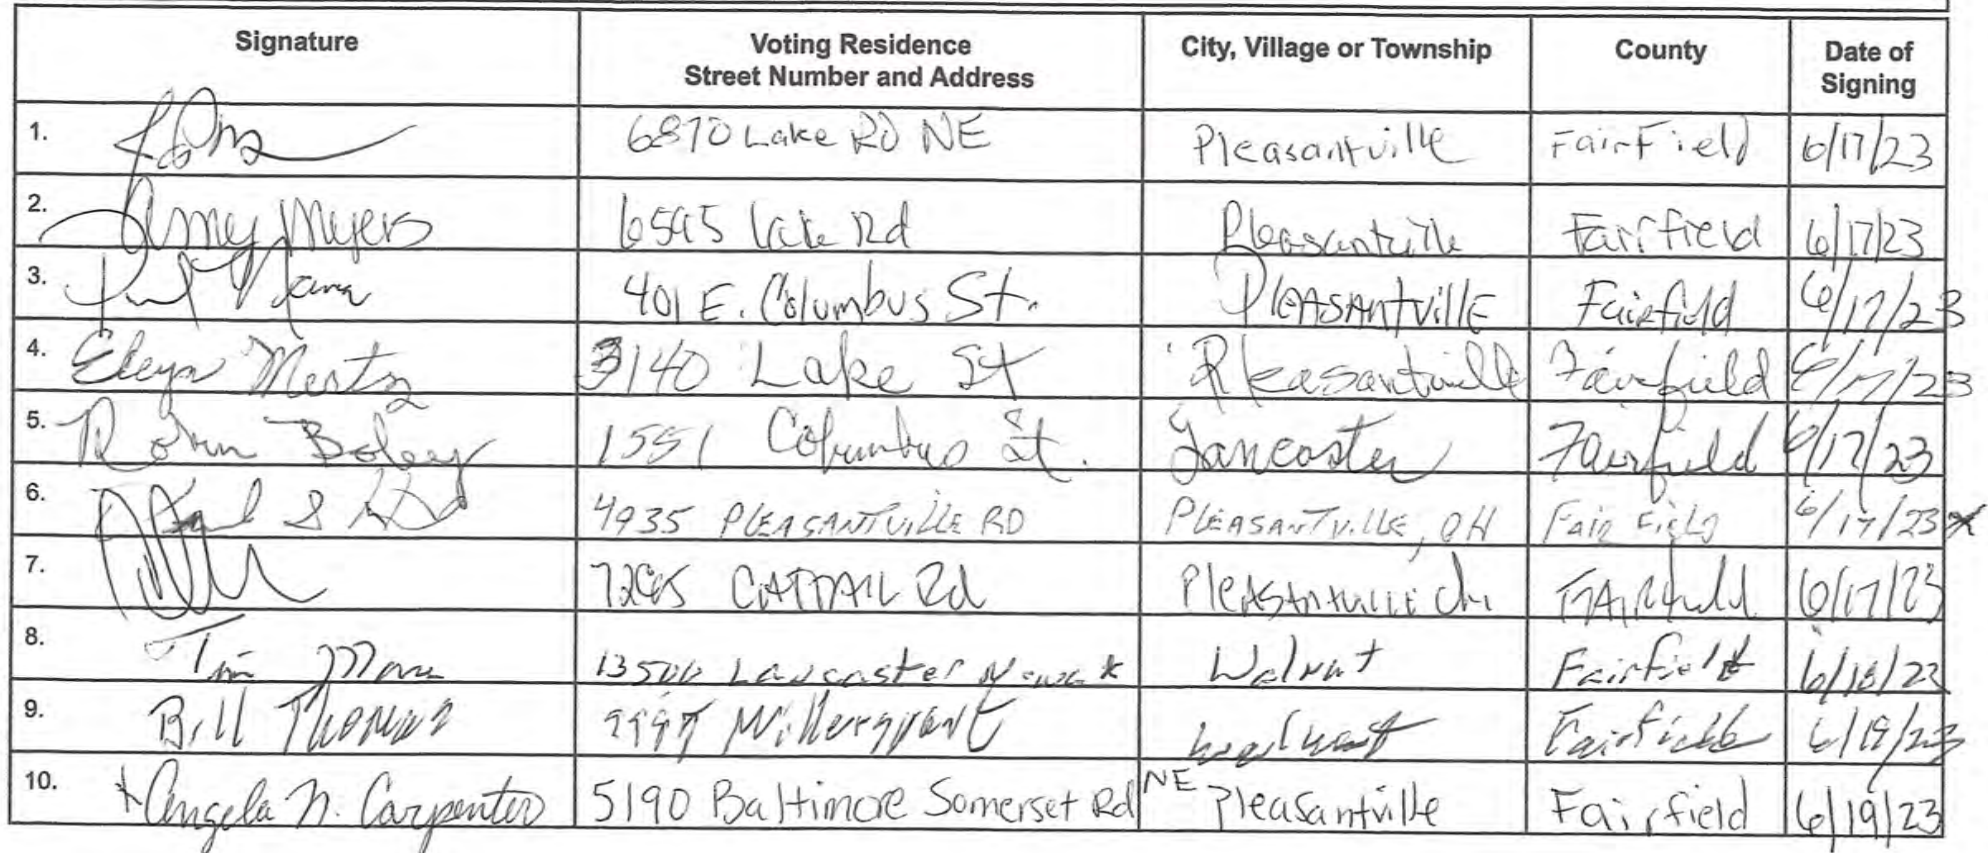 Signature Voting Residence Street Number and Address City, Village or Township County Date of Signing
1. 6870 Lake RD NE Pleasantville FairField 6/17/23
2. Amy Myers 6595 Lake Rd Pleasantville Fairfield 6/17/23
3. 401 E. Columbus St. PLEASANTVillE Fairfield 6/17/23
4. Mertz 3140 Lake St Pleasantville Fairfield 6/17/23
5. Robin Boley 1551 Columbus St. Lancaster Fairfield 6/17/23
6. 4935 PLEASANTVILLE RD PLEASANTVILLE, OH FairField 6/17/23
7. CATTAIL Rd Fairfield 6/17/23
8. Tim 13500 Lancaster Newark Walnut Fairfield 6/18/23
9. Bill Thomas Fairfield 6/19/23
10. Angela N. Carpenter 5190 Baltimore Somerset Rd NE Pleasantville Fairfield 6/19/23